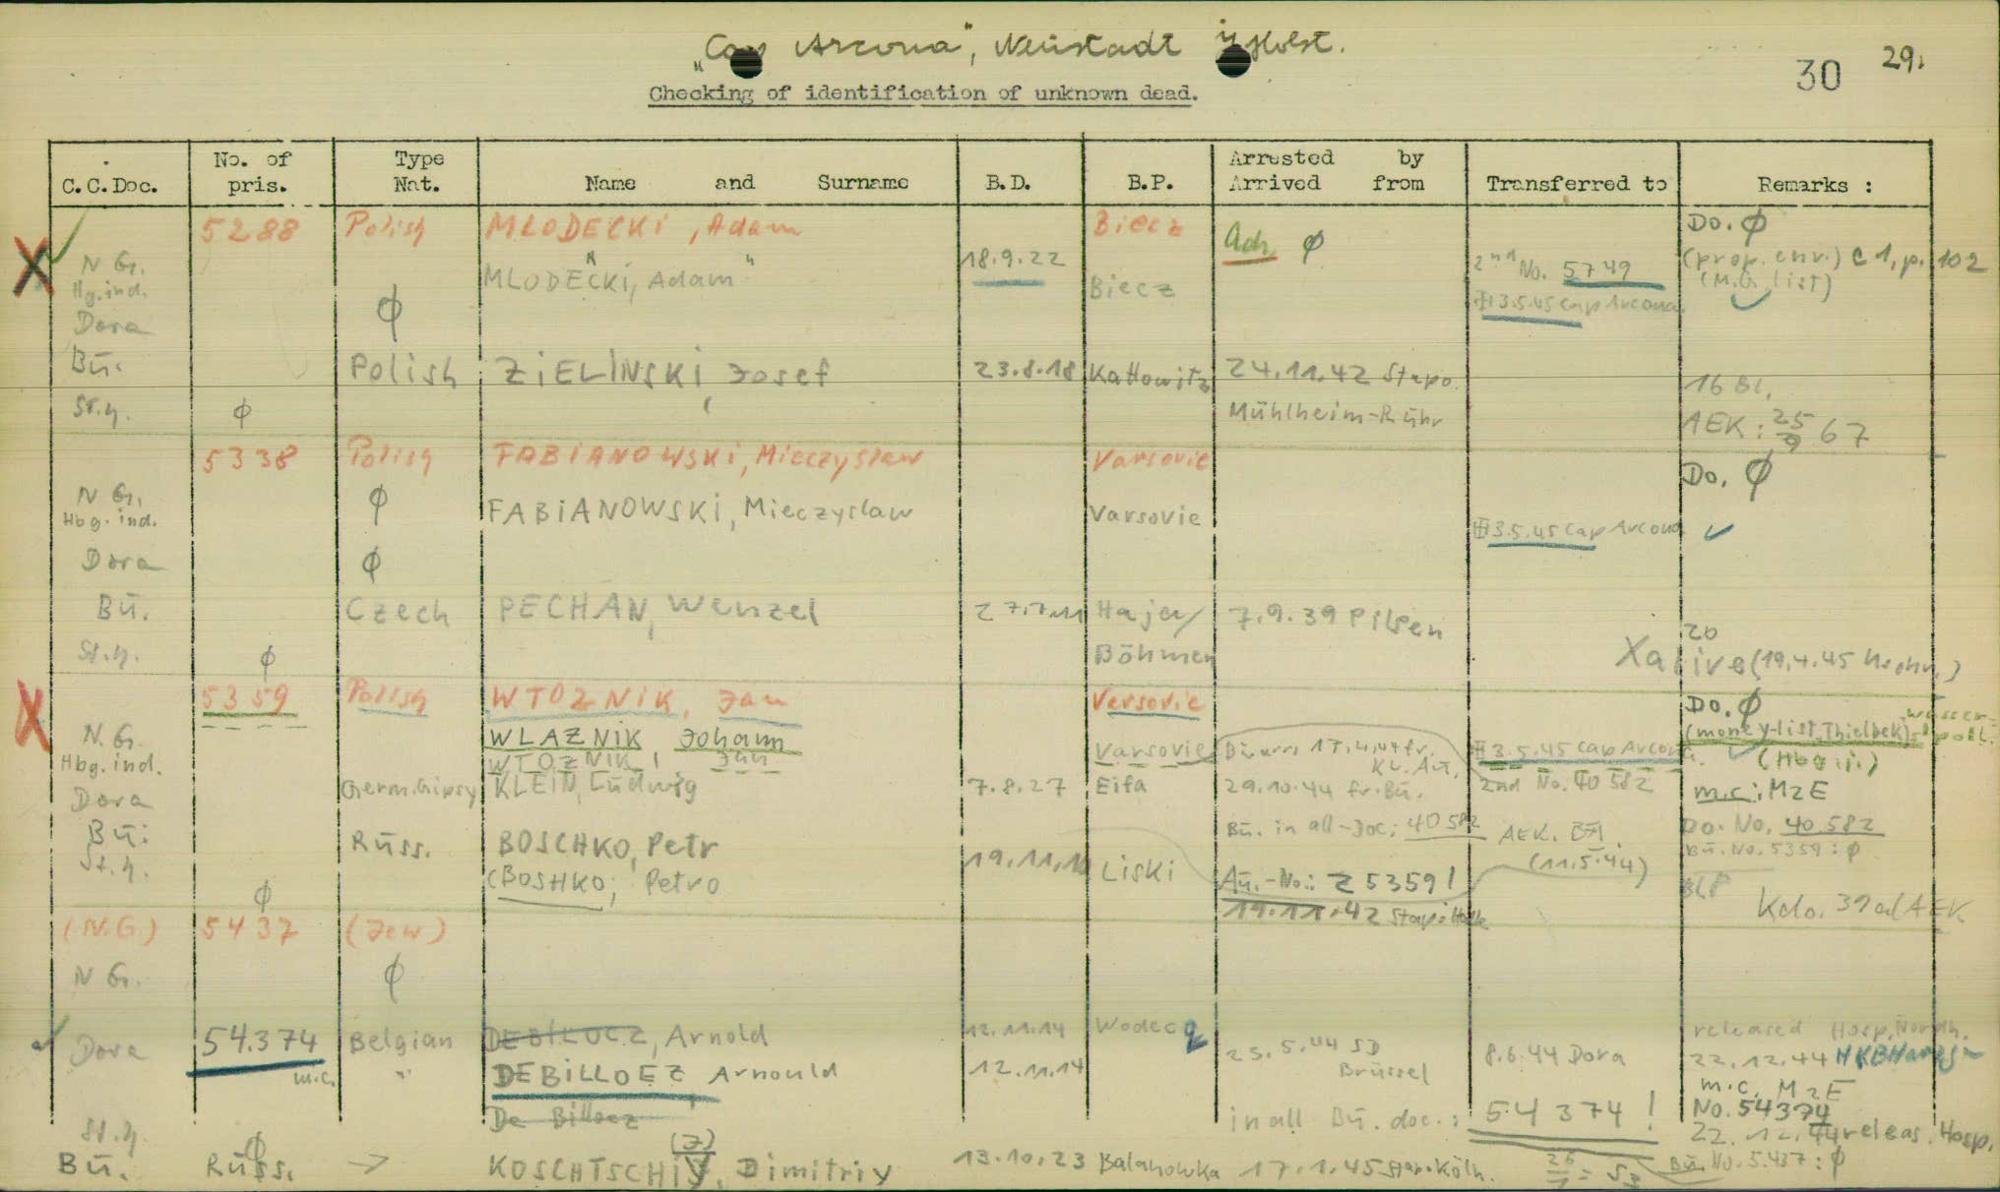 "Cap Arcona", Neustadt i/Holst.
30 29.
Checking of identification of unknown dead.
C.C.Doc. No. of pris. Type Nat. Name and Surname B.D. B.P. Arrested by Arrived from Transferred to Remarks :
5288 Polish MLODECKI, Adam Biecz Do. ϕ
N G. MLODECKI, Adam " 18.9.22 Biecz ϕ 2nd No. 5749 (prop. env.) C 1, p. 102
Hg.ind. ϕ 3.5.45 Cap Arcona (M.G. list)
Dora
Bu. Polish ZIELINSKI, Josef 23.8.18 Kattowitz 24.11.42 Stapo. 16 Bl.
St.y. ϕ Mühlheim-Ruhr AEK: 25/9 67
5338 Polish FABIANOWSKI, Mieczyslaw Varsovie Do. ϕ
N G. ϕ FABIANOWSKI, Mieczyslaw Varsovie
Hbg. ind. 3.5.45 Cap Arcona
Dora ϕ
Bu. Czech PECHAN, Wenzel 27.7.11 7.9.39 Pilsen
St.y. ϕ Böhmen X alive (19.4.45
5359 Polish WTOZNIK, Jan Versovie Do. ϕ
N.G. WLAZNIK, Johann Varsovie 17.4.44 fr. 3.5.45 Cap Arcona (money-list, Thielbek)
Hbg.ind. WTOZNIK, Jan
Dora Germ.Gipsy KLEIN, Ludwig 7.8.27 Eifa 29.10.44 fr. Bu. 2nd No. 40 582 m.c.: M2E
Bu: Russ. BOSCHKO, Petr 19.11.1 Liski Bu. in all-Doc: 40582 AEK. Do. No. 40.582
St.y. ϕ (BOSHKO, Petro Au.-No.: Z 5359! (11.5.44) Bu. No. 5359: ϕ
19.11.42 Kdo. AEK
(N.G.) 5437 (Jew)
N G. ϕ
Dora 54.374 Belgian DEBILOCZ, Arnold 12.11.14 Wodecq 23.5.44 SD Brüssel 8.6.44 Dora released Hosp. Nordh. 22.12.44
m.c. " DEBILLOEZ Arnould 12.11.14 m.c. M2E
De Billoez in all Bu. doc.: 54374! No. 54374
St.y. ϕ 22.12.44 releas. Hosp.
Bu. Russ. → KOSCHTSCHIY, Dimitriy 13.10.23 Balanowka 17.1.45 Köln. Bu. No. 5437: ϕ